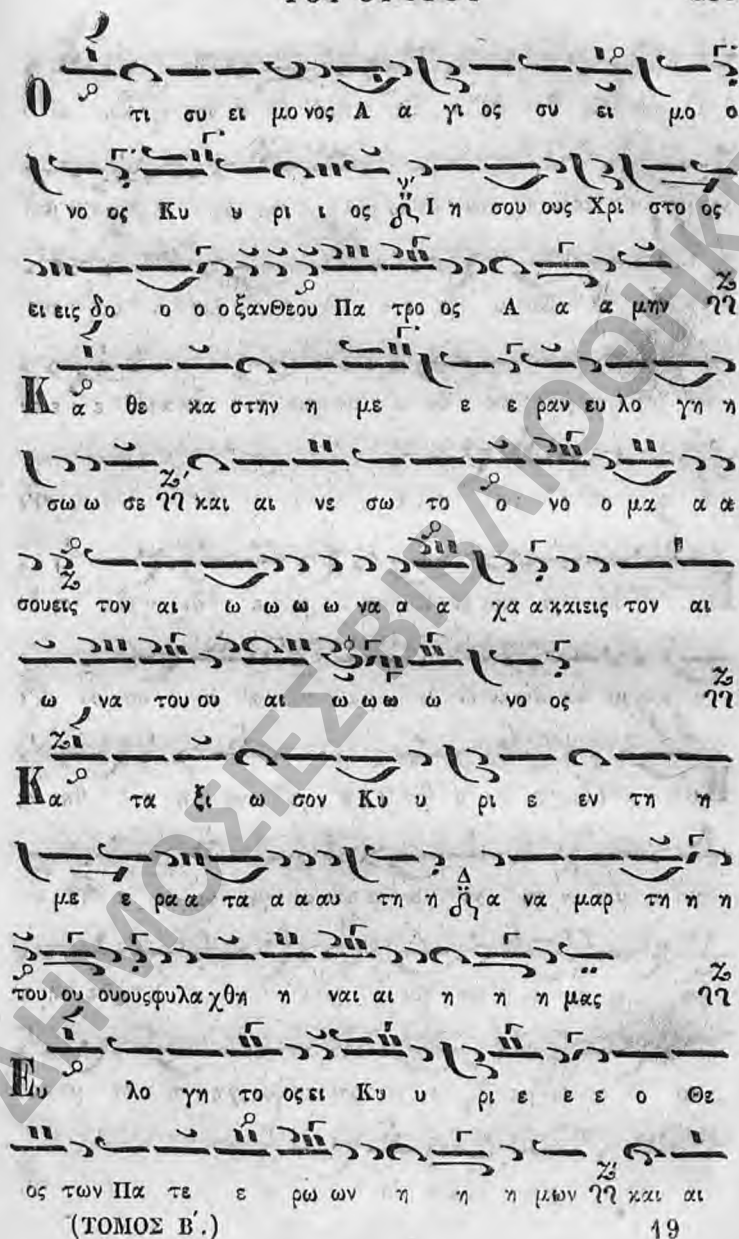 Ο τι συ ει μο νος Α α γι ος συ ει μο ο
νο ος Κυ υ ρι ι ος Ι η σου ους Χρι στο ος
ει εις δο ο ο ο ξαν Θεου Πα τρο ος Α α α μην
Κ α θε κα στην η με ε ε ραν ευ λο γη η
σω ω σε και αι νε σω το ο νο ο μα α α
σου εις τον αι ω ω ω ω να α α χα α και εις τον αι
ω να του ου αι ω ω ω ω νο ος
Κα τα ξι ω σον Κυ υ ρι ε εν τη η
με ε ρα α τα α α αυ τη η Δ α να μαρ τη η η
του ου ου ους φυ λα χθη η ναι αι η η η μας
Ευ λο γη το ος ει Κυ υ ρι ε ε ε ο Θε
ος των Πα τε ε ρω ων η η η μων και αι
(ΤΟΜΟΣ Β΄.) 19
ΔΗΜΟΣΙΕΣ ΒΙΒΛΙΟΘΗΚΕ